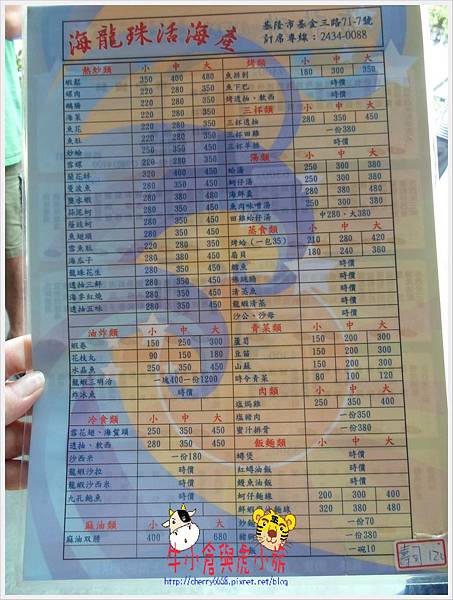 海龍珠活海產
基隆市基金三路71-7號
訂席專線：2434-0088
熱炒類 小 中 大
蝦鬆 350 400 480
螺肉 220 280 350
鵝腸 220 280 350
海菜 220 280 350
魚花 220 280 350
魚肚 220 280 350
炒蛤 220 280 350
雪螺 220 280 350
蘭花蚌 320 350 450
曼波魚 280 350 450
鹽水蝦 280 380 480
蒜泥蚵 280 350 450
蔭豉蚵 280 350 450
魚翅頭 280 350 450
雪魚肚 280 350 450
海瓜子 280 350 450
龍珠花生 280 350 450
透抽三鮮 280 350 450
海參紅燒 280 350 450
透抽五味 280 350 450
油炸類 小 中 大
蝦卷 150 250 300
花枝丸 90 150 180
水晶魚 250 350 450
龍蝦三明治 一塊400一份1200
炸冰魚 時價
冷食類 小 中 大
雪花翅、海蜇頭 250 350 450
透抽、軟西 280 350 450
沙西米 一份180
龍蝦沙拉 時價
龍蝦沙西米 時價
九孔鮑魚 時價
麻油類 小 中 大
麻油双腰 400 680
烤類 小 中 大
魚排刺 180 300 350
魚下巴 時價
烤透抽、軟西 時價
三杯類 小 中 大
三杯透抽 280 350 450
三杯田雞 一份380
三杯羊腩 時價
湯類 小 中 大
蛤湯 250 300 380
蚵仔湯 250 300 380
海鮮羹 280 380 480
魚肉味噌湯 250 300 380
田雞蛤仔湯 中280、大380
蒸食類 小 中 大
烤蛤（一包35） 210 280 420
扇貝 180 240 360
鱈魚 時價
佛跳牆 時價
清蒸魚 時價
龍蝦清蒸 時價
沙公、沙母 時價
青菜類 小 中 大
蘆筍 150 200 300
豆苗 150 200 300
山蘇 150 200 300
時令青菜 80 100 120
肉類 小 中 大
塩焗雞 250 350 400
塩豬肉 一份350
蜜汁排骨 一份380
飯麵類 小 中 大
蟳煲 時價
紅蟳油飯 時價
鰻魚油飯 時價
蚵仔麵線 200 300 400
鮮蝦 麵線 320 380 480
炒飯 一份70
一份380
一碗10
壽司 120
牛小倉與虎小妮
http://cherry6658.pixnet.net/blog